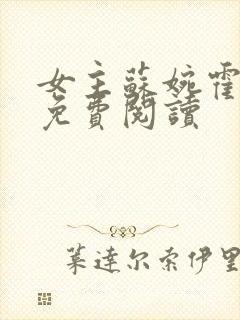 女主蘇婉霍
免費閱讀
葉達尔索伊里